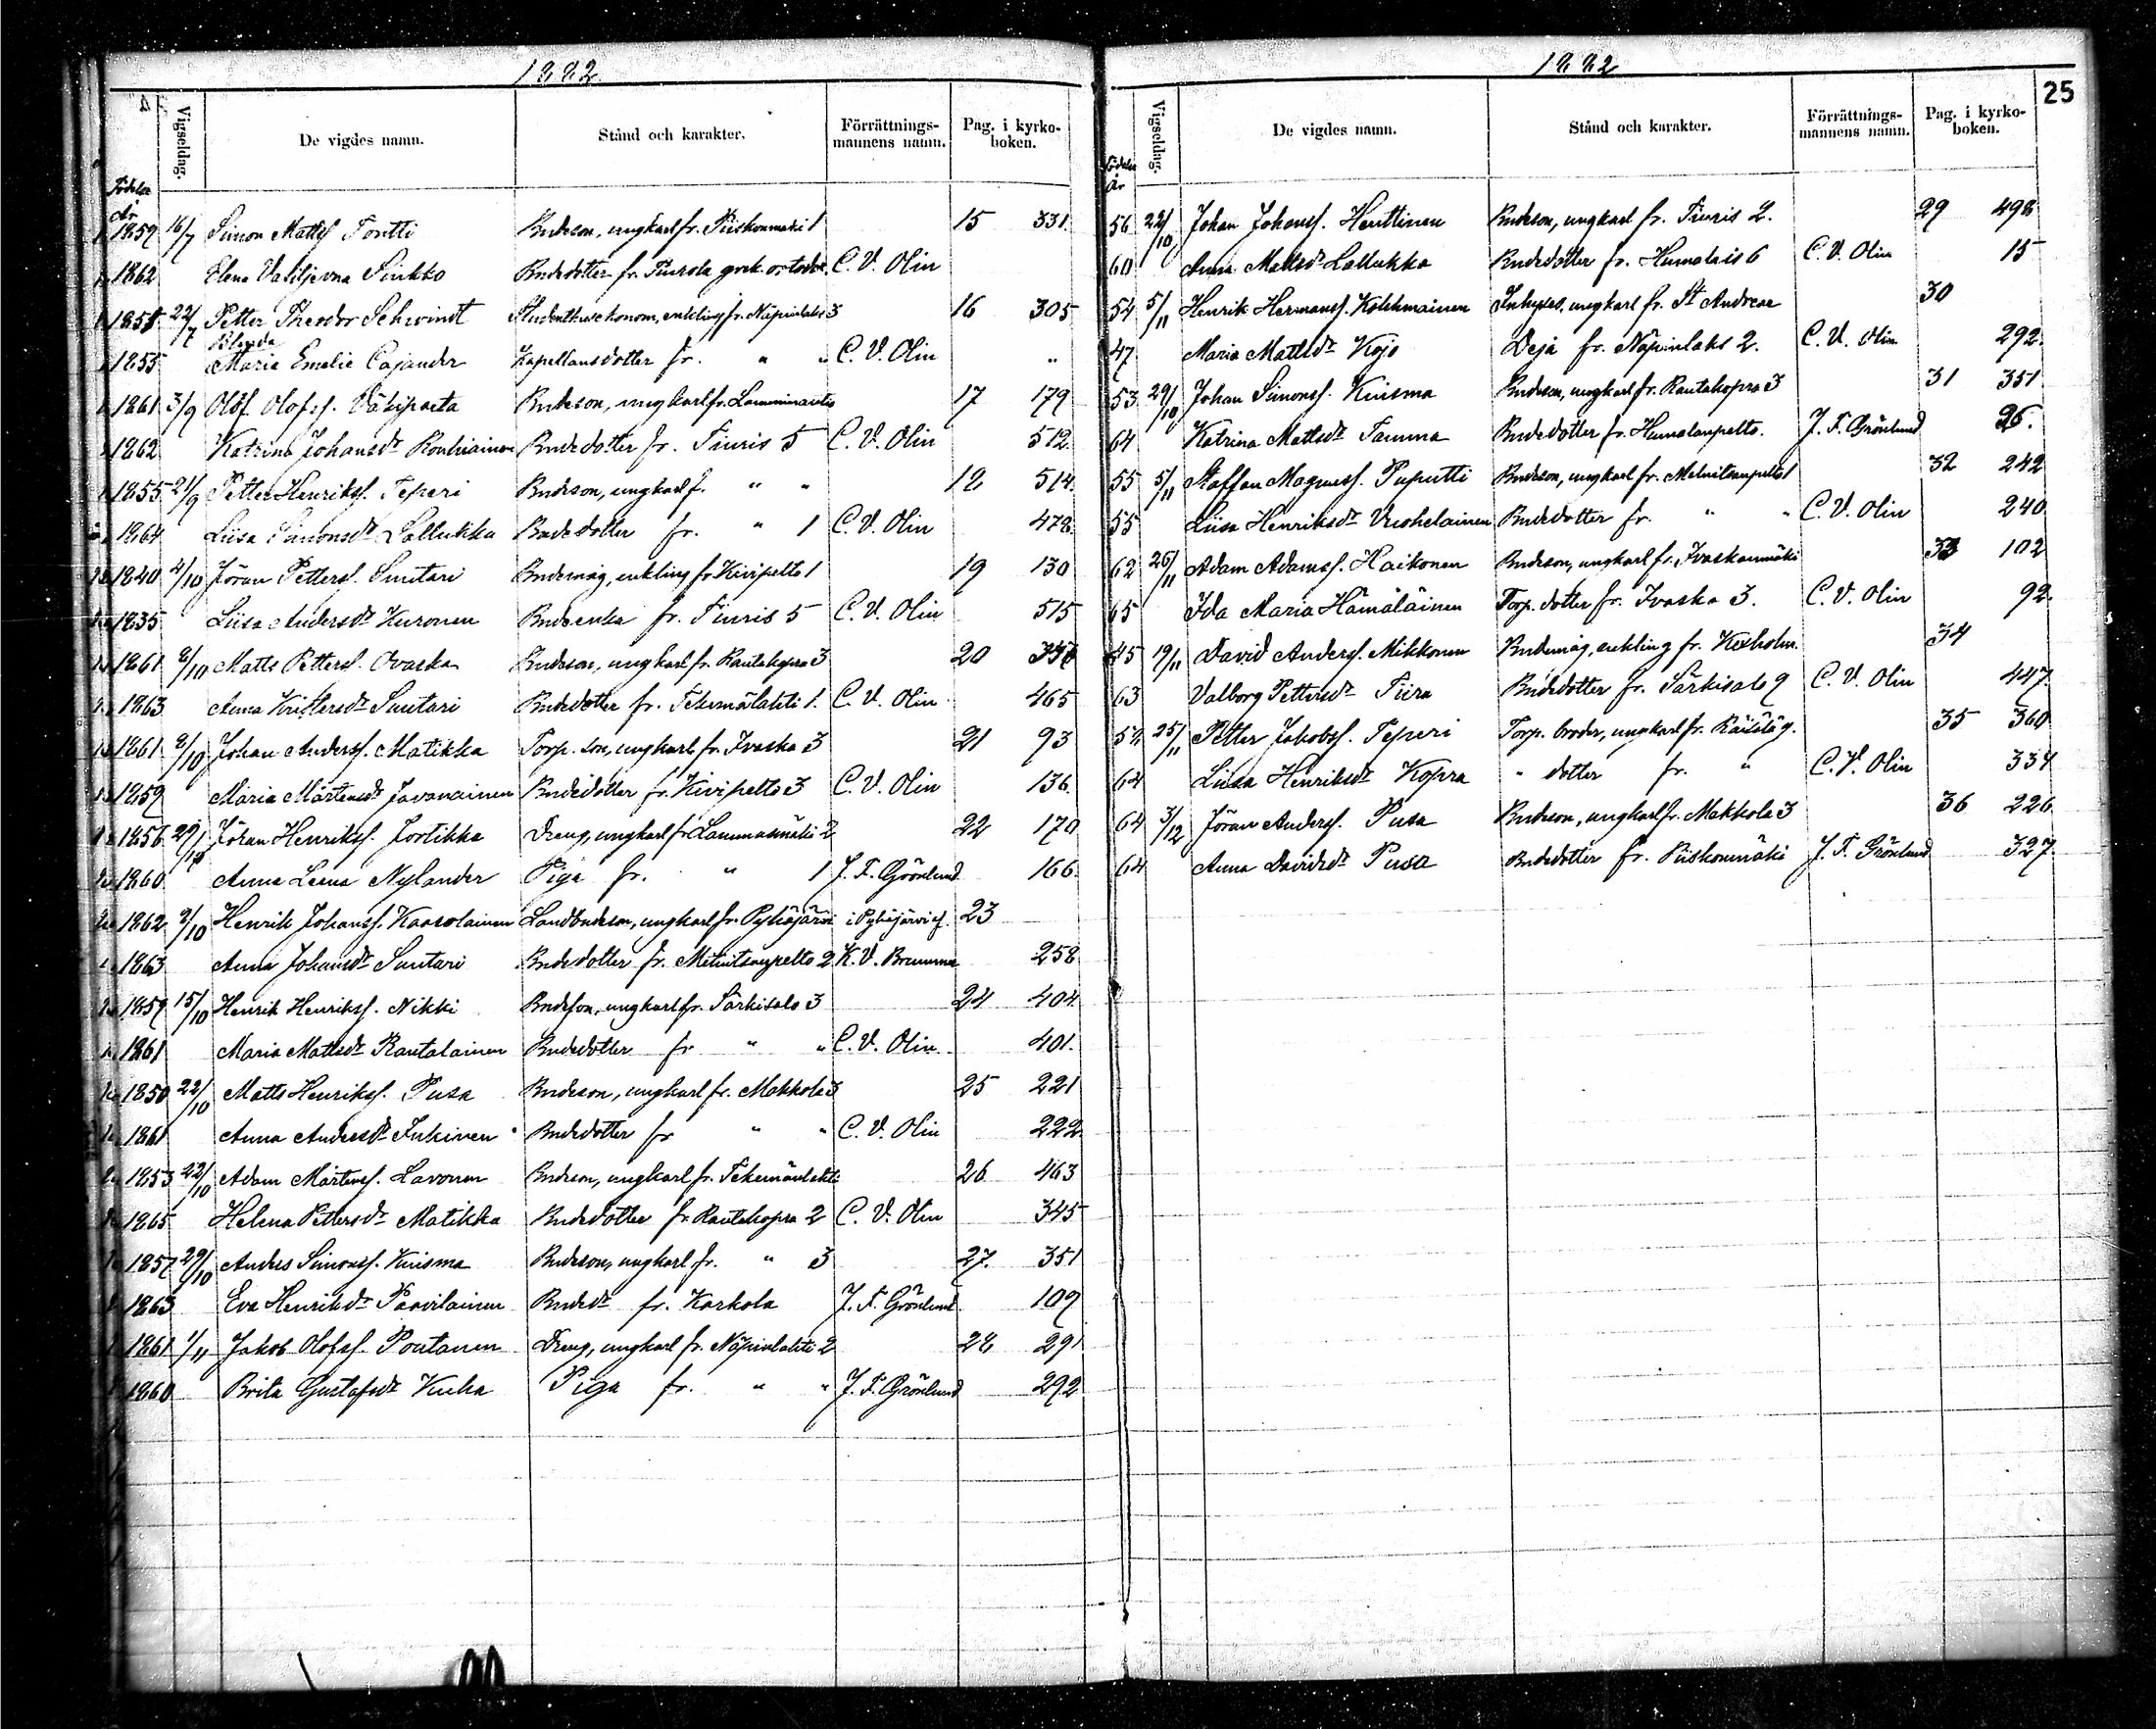 1882.
Vigseldag. De vigdes namn. Stånd och karakter. Förrättnings-mannens namn. Pag. i kyrko-boken.
Födelse år
1859 16/7 Simon Mattss Tontti Bndeson, ungkarl fr. Piiskonmäki 1 15 331.
1862 Elena Vasiljevna Sinkko Bndedotter fr. Tiurola grek. ortodox C. V. Olin
22/7 Petter Theodor Schwindt Studenthusekonom, enkling fr. Näpinlaks 3 16 305
Blenda
1855 Maria Emelie Cajander Kapellansdotter fr. " " C. V. Olin "
1861 3/9 Olof Olofss. Väkiparta Bndeson, ungkarl fr. 17 179
1862 Katrina Johansdr Bndedotter fr. Tiuris 5 C. V. Olin 512.
1855 21/9 Petter Henrikss. Teperi Bndeson, ungkarl f. " " 18 514.
1864 Liisa Simonsdr Lallukka Bndedotter fr. " 1 C. V. Olin 478.
1840 4/10 Jöran Petterss. Suutari Bndemåg, enkling fr. Kivipelto 1 19 130
1835 Liisa Andersdr Kuronen Bndeenka fr. Tiuris 5 C. V. Olin 515
1861 8/10 Matts Petterss. Ovaska Bndeson, ungkarl fr. Rautakopra 3 20
1863 Anna Kristersdr Suutari Bndedotter fr. 1. C. V. Olin 465
1861 8/10 Johan Anderss. Matikka Torp. son, ungkarl fr. Ivaska 3 21 93
1859 Maria Mårtensdr Javanainen Bndedotter fr. Kivipelto 3 C. V. Olin 136.
1856 29/10 Johan Henrikss. Jortikka Dreng, ungkarl fr. Lammasmäki 2 22 170
1860 Anna Leena Nylander Piga fr. " 1 J. F. Grönlund 166.
1862 8/10 Henrik Johanss. Kaasolainen Landbndeson, ungkarl fr. Pyhäjärvi i Pyhäjärvi af 23
1863 Anna Johansdr Suutari Bndedotter fr. Melnitsanpelto 2 K. V. Brummer 258
1859 15/10 Henrik Henrikss. Nikki Bndeson, ungkarl fr. Särkisalo 3 24 404.
1861 Maria Mattsdr Rautalainen Bndedotter fr " " C. V. Olin. 401.
1850 22/10 Matts Henrikss. Pusa Bndeson, ungkarl fr. Makkola 3 25 221
1861 Anna Andersdr Inkinen Bndedotter fr " " C. V. Olin 222.
1853 22/10 Adam Mårtenss. Lavonen Bndeson, ungkarl fr. 26 463
1865 Helena Pettersdr Matikka Bndedotter fr Rautakopra 2 C. V. Olin 345
1857 29/10 Anders Simonss. Kuisma Bndeson, ungkarl fr. " 3 27. 351
1863 Eva Henriksdr Paavilainen Bndedr fr. Karkola J. F. Grönlund 109
1861 1/11 Jakob Olofss. Pontanen Dreng, ungkarl fr. Näpinlahti 2 28 291
1860 Brita Gustafsdr Kuha Piga fr. " " J. F. Grönlund 292
1882
25
Vigseldag. De vigdes namn. Stånd och karakter. Förrättnings-mannens namn. Pag. i kyrko-boken.
Födelse år
56 22/10 Johan Johanss. Henttinen Bndeson, ungkarl fr. Tiuris 2. 29 498
60 Anna Mattsdr Lallukka Bndedotter fr. Humalais 6 C. V. Olin 15
54 5/11 Henrik Hermanss. Kolehmainen Inhyses, ungkarl fr. St Andreae 30
47 Maria Mattsdr Kojo Deja fr. Näpinlaks 2. C. V. Olin 292.
53 29/10 Johan Simonss. Kuisma Bndeson, ungkarl fr. Rautakopra 3 31 351
64 Katrina Mattsdr Tamma Bndedotter fr. Humalanpelto. J. F. Grönlund 26.
55 5/11 Staffan Magnuss. Puputti Bndeson, ungkarl fr. Melnitsanpelto 1 32 242
55 Liisa Henriksdr Vushelainen Bndedotter fr. " " C. V. Olin 240
62 26/11 Adam Adamss. Haikonen Bndeson, ungkarl fr. Ivaskanmäki 33 102
65 Ida Maria Hämäläinen Torp. dotter fr. Ivaska 3. C. V. Olin 92.
45 19/11 David Anderss. Mikkonen Bndemåg, enkling fr. Kexholm. 34
63 Valborg Pettersdr Tiira Bndedotter fr. Särkisalo 9 C. V. Olin 447.
52 25/11 Petter Jakobss. Teperi Torp. broder, ungkarl fr. 35 360
64 Liisa Henriksdr Kopra " dotter fr. " C. V. Olin 334
64 3/12 Jöran Anderss. Pusa Bndeson, ungkarl fr. Makkola 3 36 226
64 Anna Davidsdr Pusa Bndedotter fr. Piiskonmäki J. F. Grönlund 327.